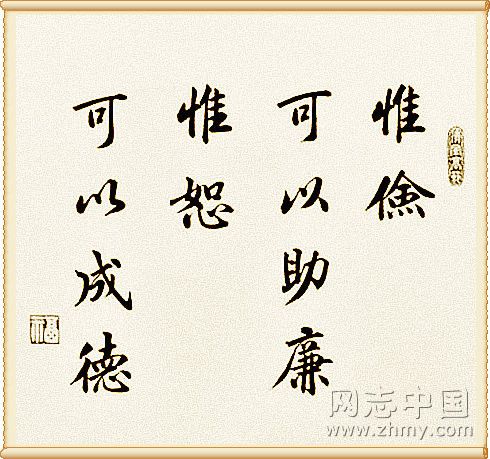 惟儉
可以助廉
惟恕
可以成德
网志中国
www.zhmy.com